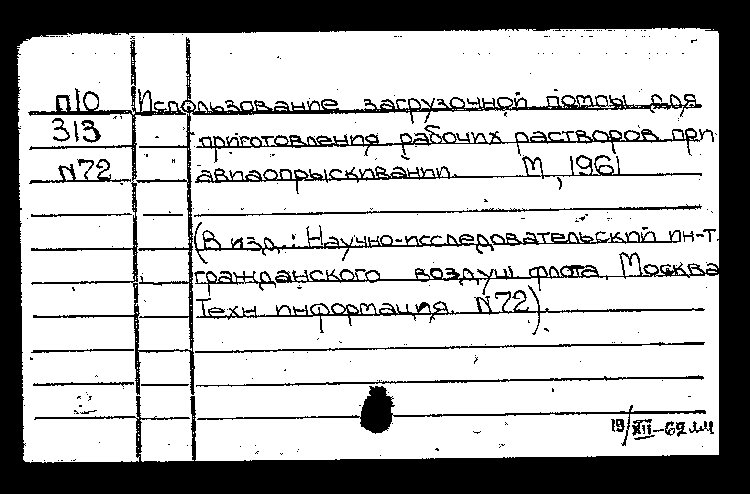 П10 Использование загрузочной помпы для
313 приготовления рабочих растворов при
N72 авиаопрыскивании. М, 1961
(В изд.: Научно-исследовательский ин-т.
гражданского воздуш флота. Москва
Техн информация. N72).
19/XII-62